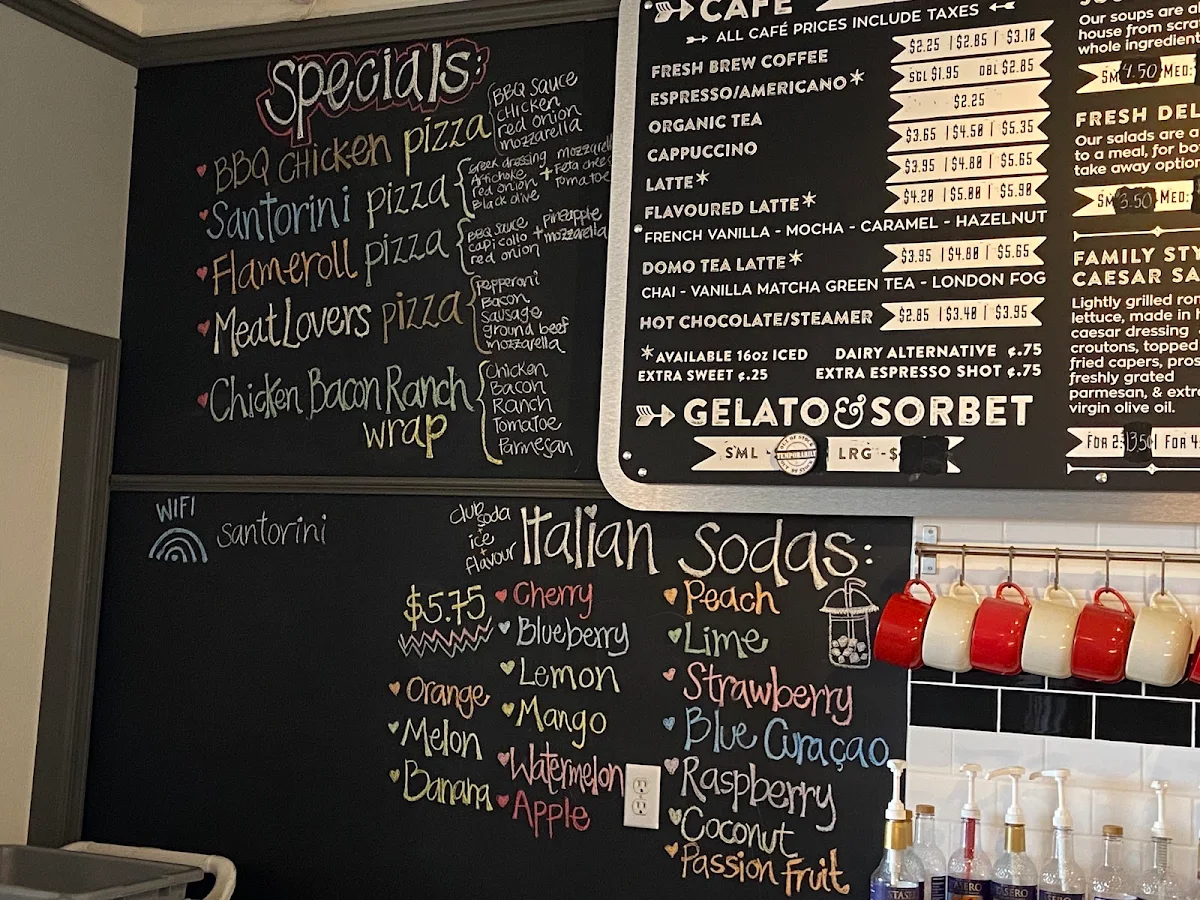 Specials:
BBQ Chicken pizza
BBQ sauce
Chicken
red onion
mozzarella
Santorini pizza
Greek dressing mozzarell
Artichoke + Feta cheese
red onion Tomatoe
Black olive
Flameroll pizza
BBQ sauce + pineapple
capicollo mozzarella
red onion
Meat Lovers pizza
pepperoni
Bacon
Sausage
ground beef
mozzarella
Chicken Bacon Ranch
wrap
Chicken
Bacon
Ranch
Tomatoe
Parmesan
WIFI
santorini
club soda
+
ice
+
flavour
Italian Sodas:
$5.75
Orange
Melon
Banana
Cherry
Blueberry
Lemon
Mango
Watermelon
Apple
Peach
Lime
Strawberry
Blue Curaçao
Raspberry
Coconut
Passion fruit
CAFÉ
ALL CAFÉ PRICES INCLUDE TAXES
FRESH BREW COFFEE $2.25 | $2.85 | $3.10
ESPRESSO/AMERICANO* SGL $1.95 DBL $2.85
ORGANIC TEA $2.25
CAPPUCCINO $3.65 | $4.50 | $5.35
LATTE* $3.95 | $4.80 | $5.65
FLAVOURED LATTE* $4.20 | $5.00 | $5.90
FRENCH VANILLA - MOCHA - CARAMEL - HAZELNUT
DOMO TEA LATTE* $3.95 | $4.80 | $5.65
CHAI - VANILLA MATCHA GREEN TEA - LONDON FOG
HOT CHOCOLATE/STEAMER $2.85 | $3.40 | $3.95
*AVAILABLE 16oz ICED DAIRY ALTERNATIVE ¢.75
EXTRA SWEET ¢.25 EXTRA ESPRESSO SHOT ¢.75
GELATO & SORBET
SML - OUT OF STOCK TEMPORARILY LRG - $
Our soups are al
house from scra
whole ingredient
SM 4.50 MED:
FRESH DEL
Our salads are a
to a meal, for bo
take away option
SM 3.50 MED:
FAMILY STY
CAESAR SA
Lightly grilled ron
lettuce, made in h
caesar dressing
croutons, topped
fried capers, pros
freshly grated
parmesan, & extr
virgin olive oil.
FOR 2 13.50 | FOR 4